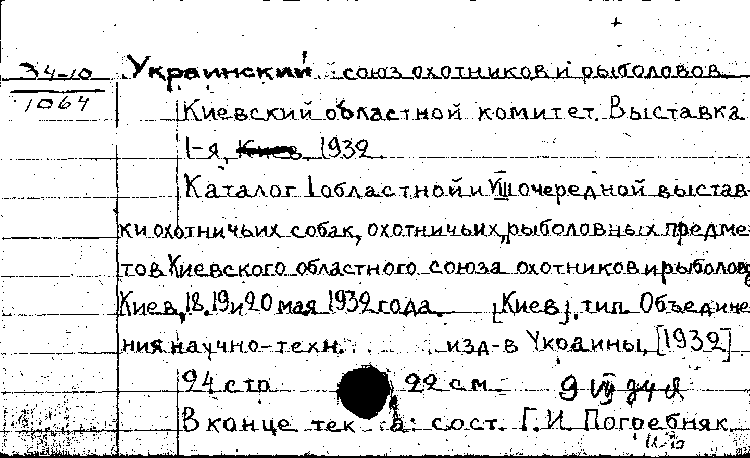 34-10
1064
Украинский союз охотников и рыболовов.
Киевский областной комитет. Выставка
1-я, Киев, 1932.
Каталог I областной и VIII очередной выстав-
ки охотничьих собак, охотничьих, рыболовных предме-
тов Киевского областного союза охотников и рыболов
Киев, 18, 19 и 20 мая 1932 года. [Киев], тип. Объедине-
ния научно-техн. изд-в Украины, [1932]
24 стр. 22 см.
В конце тек а: сост. Г. И. Погребняк.